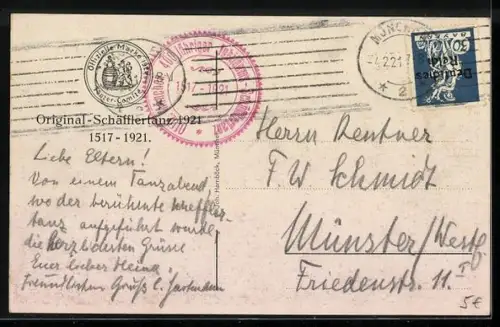 Offizielle Marke
Original-Schäfflertanz 1921
1517-1921.
1517-1921
MÜNCHEN
-4.2.21.7
* 2
30
Deutsches
Reich
Liebe Eltern!
Von einem Tanzabend
wo der berühmte Scheffler-
tanz aufgeführt wurde
die herzlichsten Grüße
Euer lieber Heine
Freundlichen Gruß
Herrn Rentner
F. W Schmidt
Münster/Westf
Friedenstr. 11.
5€